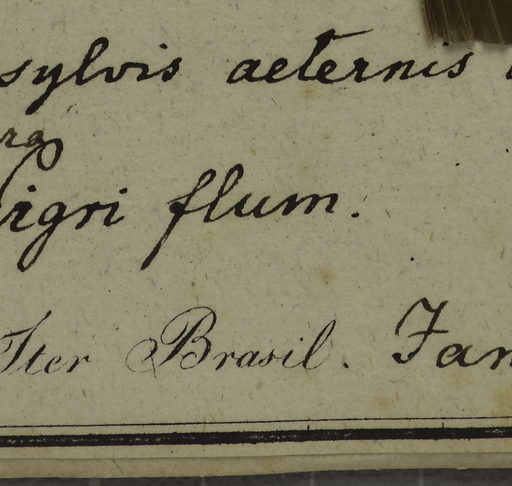 sylvis aeternis
ra
Nigri flum.
Iter Brasil. Jan